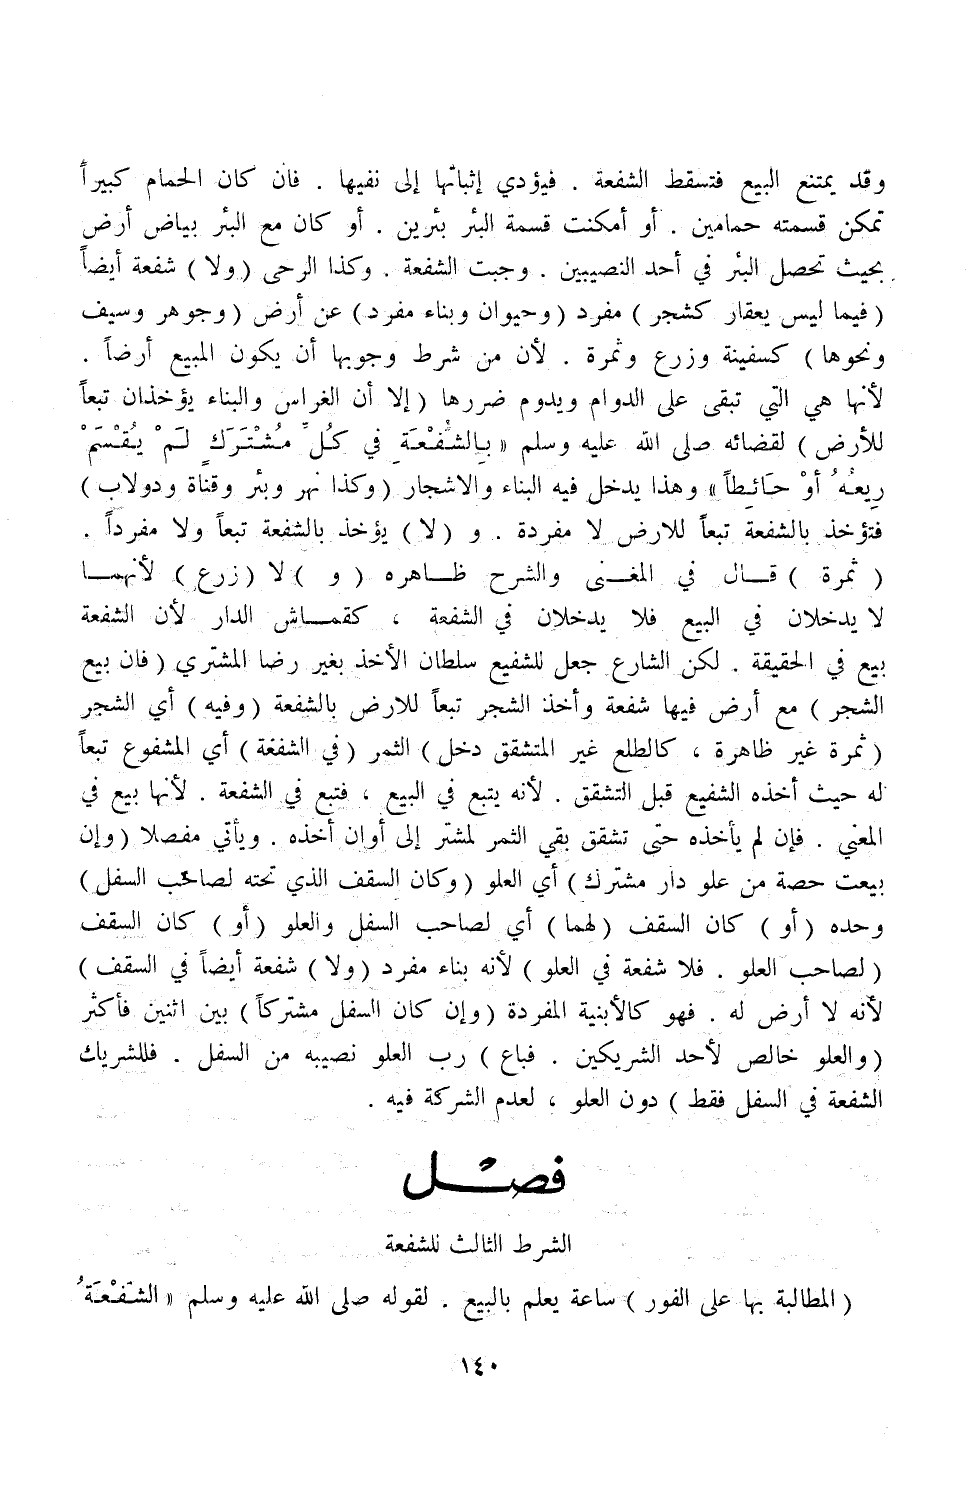 وقد يمتنع البيع فتسقط الشفعة . فيؤدي إثباتها إلى نفيها . فان كان الحمام كبيراً
تمكن قسمته حمامين . أو أمكنت قسمة البئر بئرين . أو كان مع البئر بياض أرض
بحيث تحصل البئر في أحد النصيبين . وجبت الشفعة . وكذا الرحى ( ولا ) شفعة أيضاً
( فيما ليس بعقار كشجر ) مفرد ( وحيوان وبناء مفرد ) عن أرض ( وجوهر وسيف
ونحوها ) كسفينة وزرع وثمرة . لأن من شرط وجوبها أن يكون المبيع أرضاً .
لأنها هي التي تبقى على الدوام ويدوم ضررها ( إلا أن الغراس والبناء يؤخذان تبعاً
للأرض ) لقضائه صلى الله عليه وسلم « بِالشُّفْعَةِ فِي كُلِّ مُشْتَرَكٍ لَمْ يُقْسَمْ
رِبعُهُ أوْ حَائِطاً » وهذا يدخل فيه البناء والاشجار ( وكذا نهر وبئر وقناة ودولاب )
فتؤخذ بالشفعة تبعاً للارض لا مفردة . و ( لا ) يؤخذ بالشفعة تبعاً ولا مفرداً .
( ثمرة ) قال في المغنى والشرح ظاهره ( و ) لا ( زرع ) لأنهما
لا يدخلان في البيع فلا يدخلان في الشفعة ، كقماش الدار لأن الشفعة
بيع في الحقيقة . لكن الشارع جعل للشفيع سلطان الأخذ بغير رضا المشتري ( فان بيع
الشجر ) مع أرض فيها شفعة وأخذ الشجر تبعاً للارض بالشفعة ( وفيه ) أي الشجر
( ثمرة غير ظاهرة ، كالطلع غير المتشقق دخل ) الثمر ( في الشفعة ) أي المشفوع تبعاً
له حيث أخذه الشفيع قبل التشقق . لأنه يتبع في البيع ، فتبع في الشفعة . لأنها بيع في
المعنى . فإن لم يأخذه حتى تشقق بقي الثمر لمشتر إلى أوان أخذه . ويأتي مفصلا ( وإن
بيعت حصة من علو دار مشترك ) أي العلو ( وكان السقف الذي تحته لصاحب السفل )
وحده ( أو ) كان السقف ( لهما ) أي لصاحب السفل والعلو ( أو ) كان السقف
( لصاحب العلو . فلا شفعة في العلو ) لأنه بناء مفرد ( ولا ) شفعة أيضاً في السقف )
لأنه لا أرض له . فهو كالأبنية المفردة ( وإن كان السفل مشتركاً ) بين اثنين فأكثر
( والعلو خالص لأحد الشريكين . فباع ) رب العلو نصيبه من السفل . فللشريك
الشفعة في السفل فقط ) دون العلو ، لعدم الشركة فيه .
فصل
الشرط الثالث للشفعة
( المطالبة بها على الفور ) ساعة يعلم بالبيع . لقوله صلى الله عليه وسلم « الشُّفْعَةُ
١٤٠